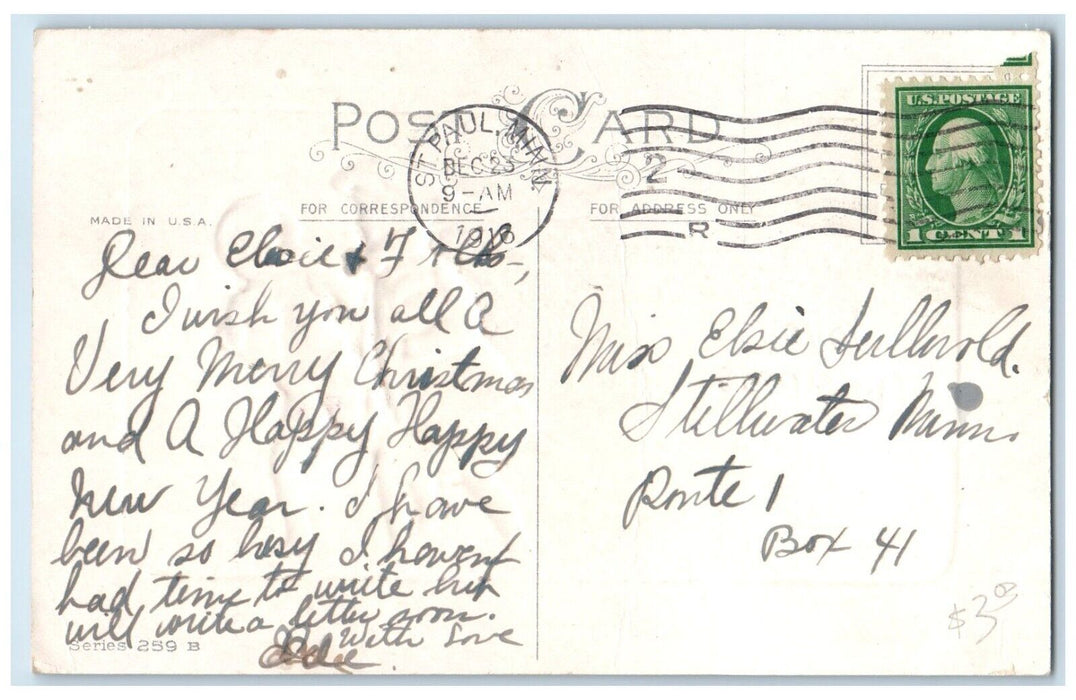 POST CARD
ST. PAUL, MINN.
DEC 23
9-AM
1916
2
R
U.S. POSTAGE
1 CENT 1
MADE IN U.S.A.
FOR CORRESPONDENCE
FOR ADDRESS ONLY
Dear Elsie &
I wish you all A
Very Merry Christmas
and A Happy Happy
New Year. I have
been so busy I havent
had time to write but
will write a letter soon.
With Love
Series 259 B
Miss Elsie
Stillwater Minn.
Route 1
Box 41
$3.00